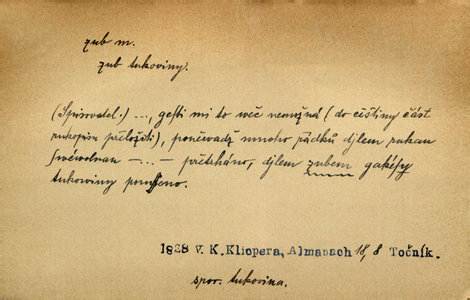 zub m.
zub tukoviny.
(Spisovatel.) ..., gesti mi to wěc nemožná (do češtiny část
rukopisu přeložiti), poněwadž mnoho řádků djlem rukau
swéwolnau — ... — přetrháno, djlem zubem gakésy
tukowiny porušeno.
1828 V. K. Klicpera, Almanach 18, 8 Točník.
spor. tukovina.